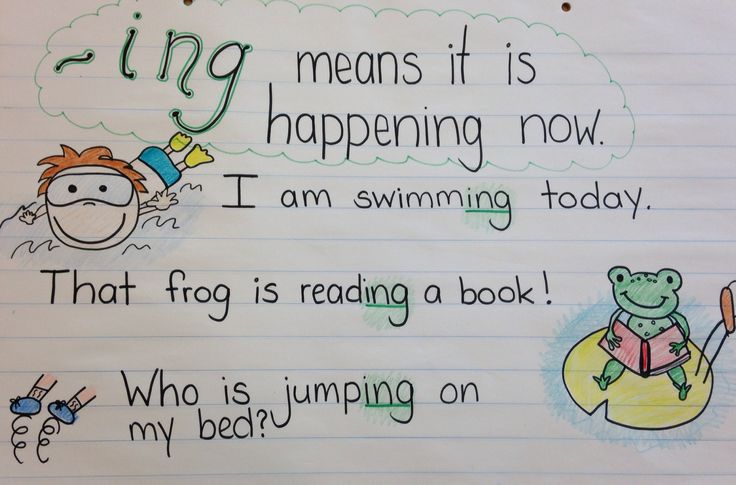 -ing means it is
happening now.
I am swimming today.
That frog is reading a book!
Who is jumping on
my bed?